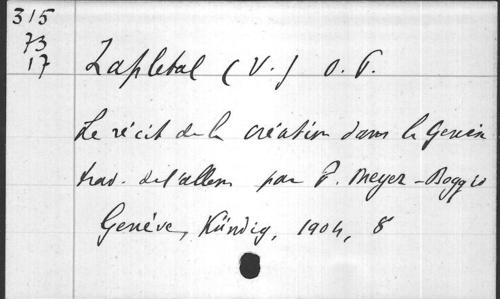 315
73
17
Zapletal (V.) O. P.
Le récit de la création dans la Genèse
trad. de l'allem par P. Meyer-Boggio
Genève, Kündig, 1904, 8